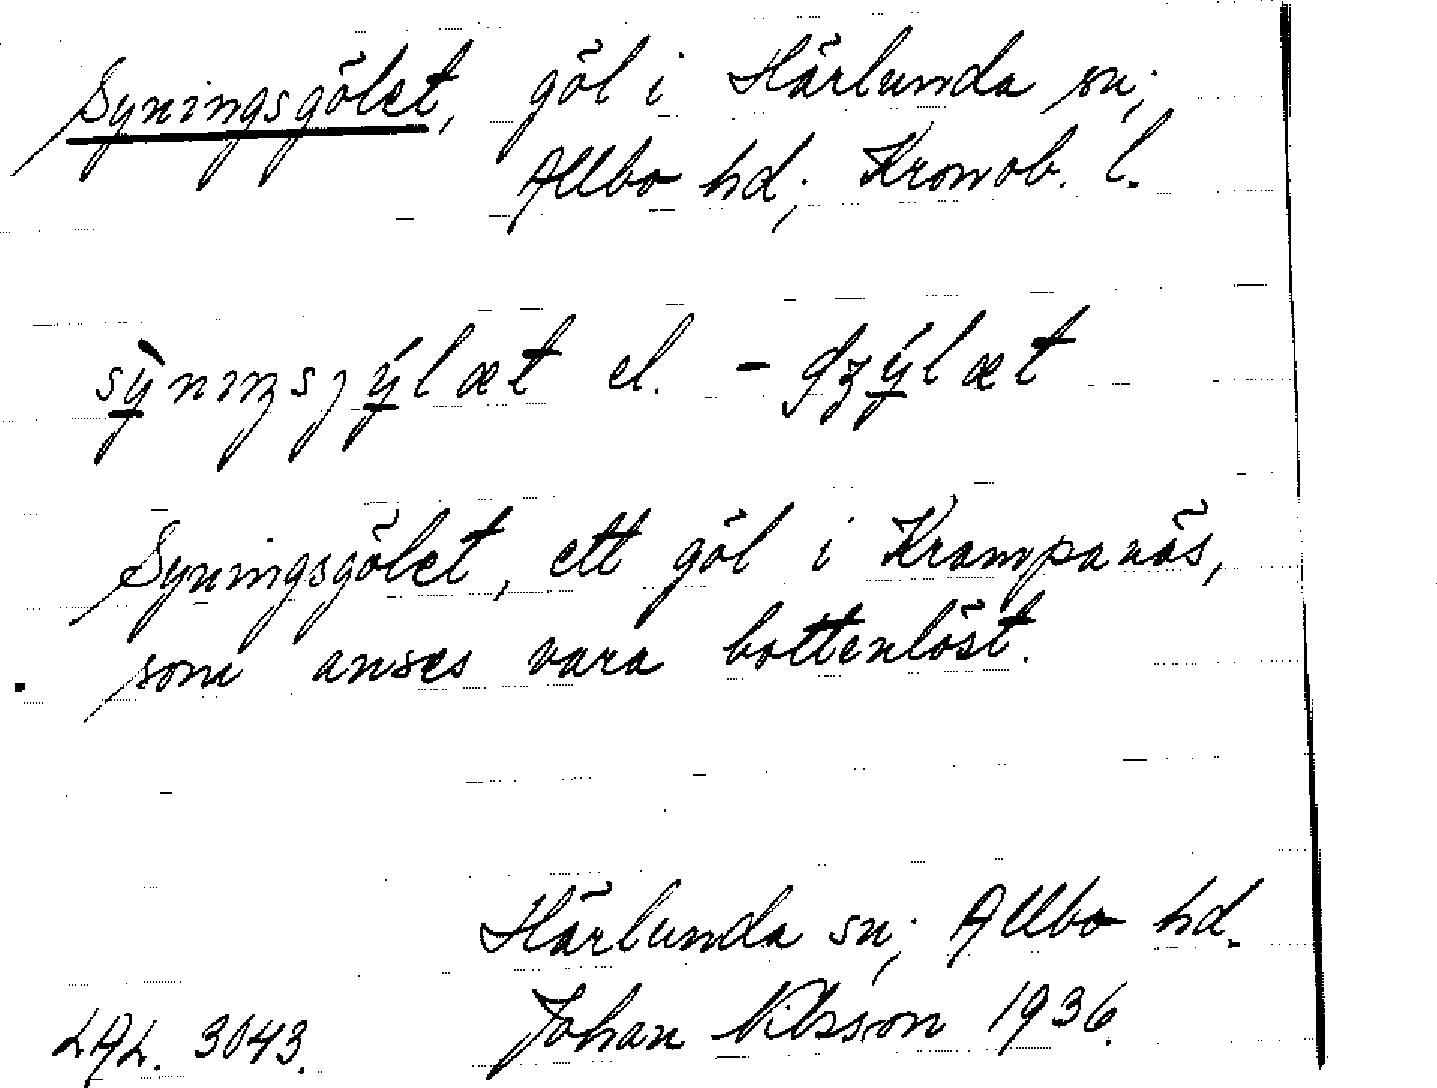 Syningsgölet, göl i Härlunda sn;
Allbo hd; Kronob. l.
el.
Syningsgölet, ett göl i Krampanäs,
som anses vara bottenlöst.
Härlunda sn; Allbo hd.
LAL. 3043. Johan Nilsson 1936.